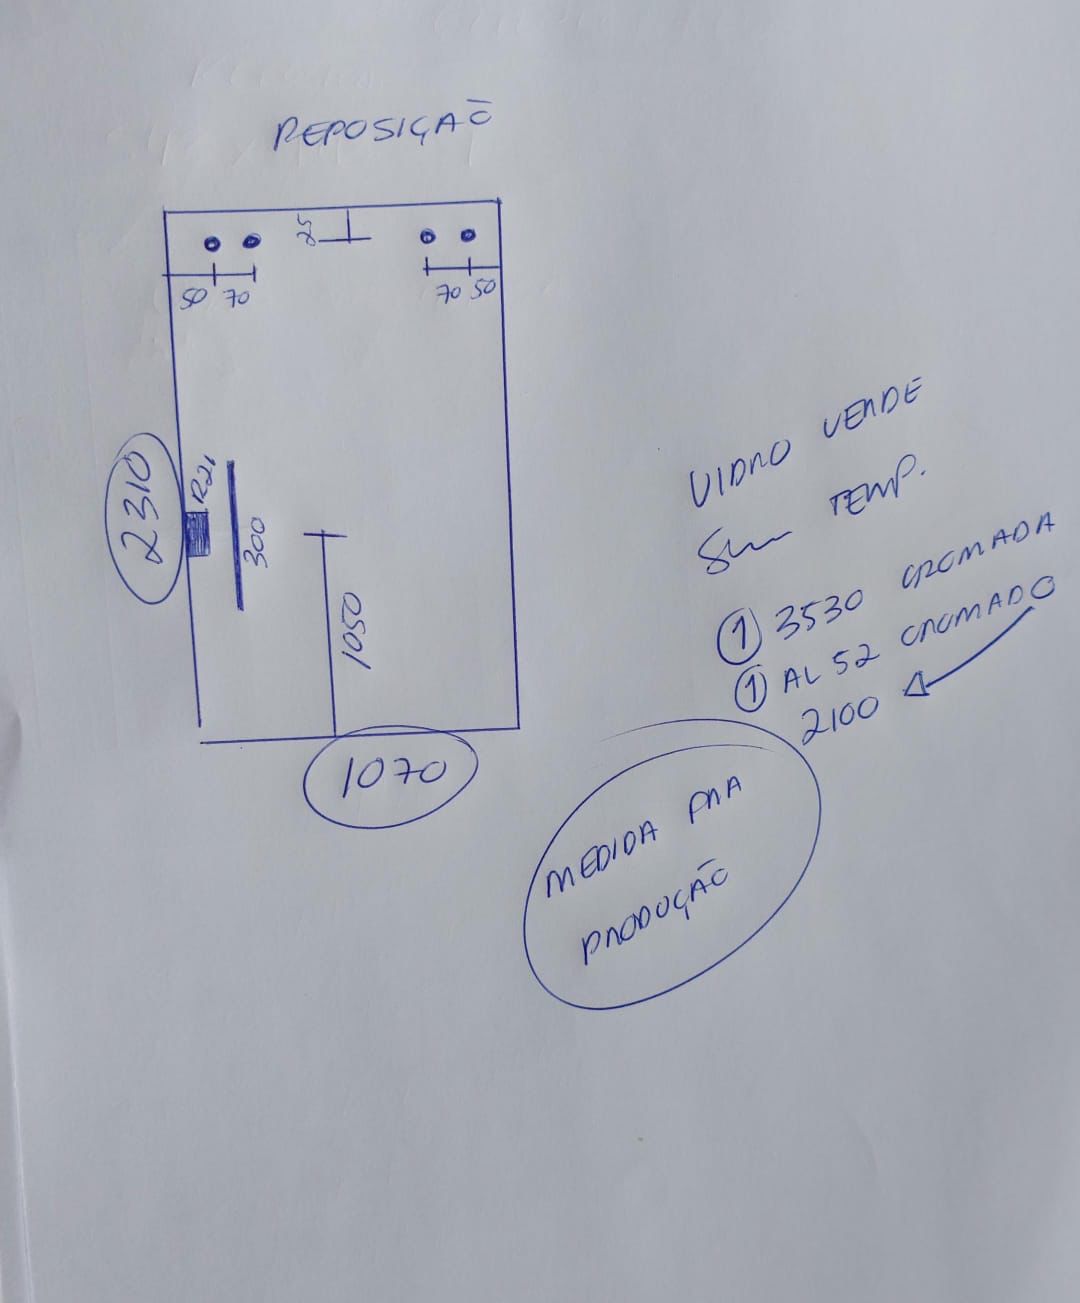 REPOSIÇAÕ
25
50 70
70 50
2310
R21
300
1050
1070
VIDRO VERDE
8mm TEMP.
① 3530 CROMADA
① AL 52 CROMADO
2100
MEDIDA PRA
PRODUÇÃO